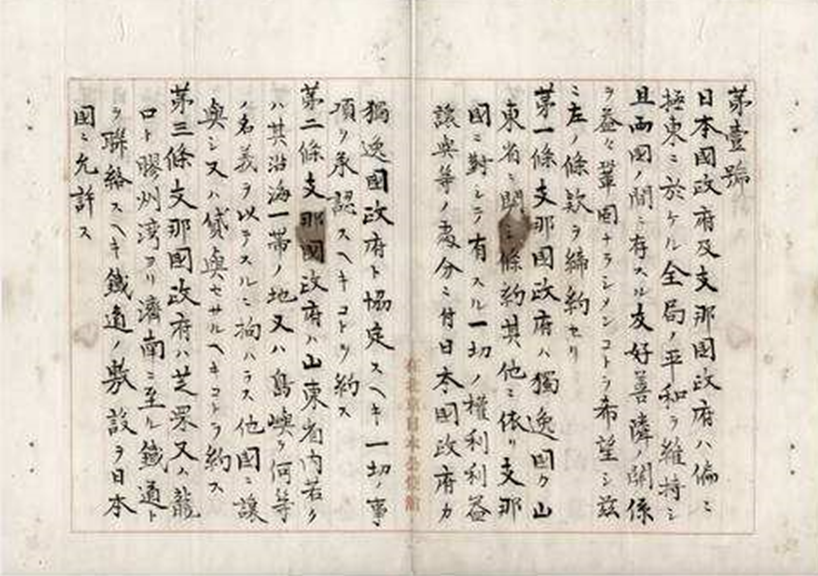 第壹號
日本國政府及支那國政府ハ偏ニ
極東ニ於ケル全局ノ平和ヲ維持シ
且両國ノ間ニ存スル友好善隣ノ関係
ヲ益々鞏固ナラシメンコトヲ希望シ茲
ニ左ノ條款ヲ締約セリ
第一條支那國政府ハ獨逸國カ山
東省ニ関シ條約其他ニ依リ支那
國ニ對シテ有スル一切ノ權利利益
讓與等ノ處分ニ付日本國政府カ
獨逸國政府ト協定スヘキ一切ノ事
項ヲ承認スヘキコトヲ約ス
第二條支那國政府ハ山東省内若ク
ハ其沿海一帯ノ地又ハ島嶼ヲ何等
ノ名義ヲ以テスルニ拘ハラス他國ニ讓
與シ又ハ貸與セサルヘキコトヲ約ス
第三條支那國政府ハ芝罘又ハ龍
口ト膠州湾ヨリ濟南ニ至ル鐵道ト
ヲ聯絡スヘキ鐵道ノ敷設ヲ日本
國ニ允許ス
在北京日本公使館